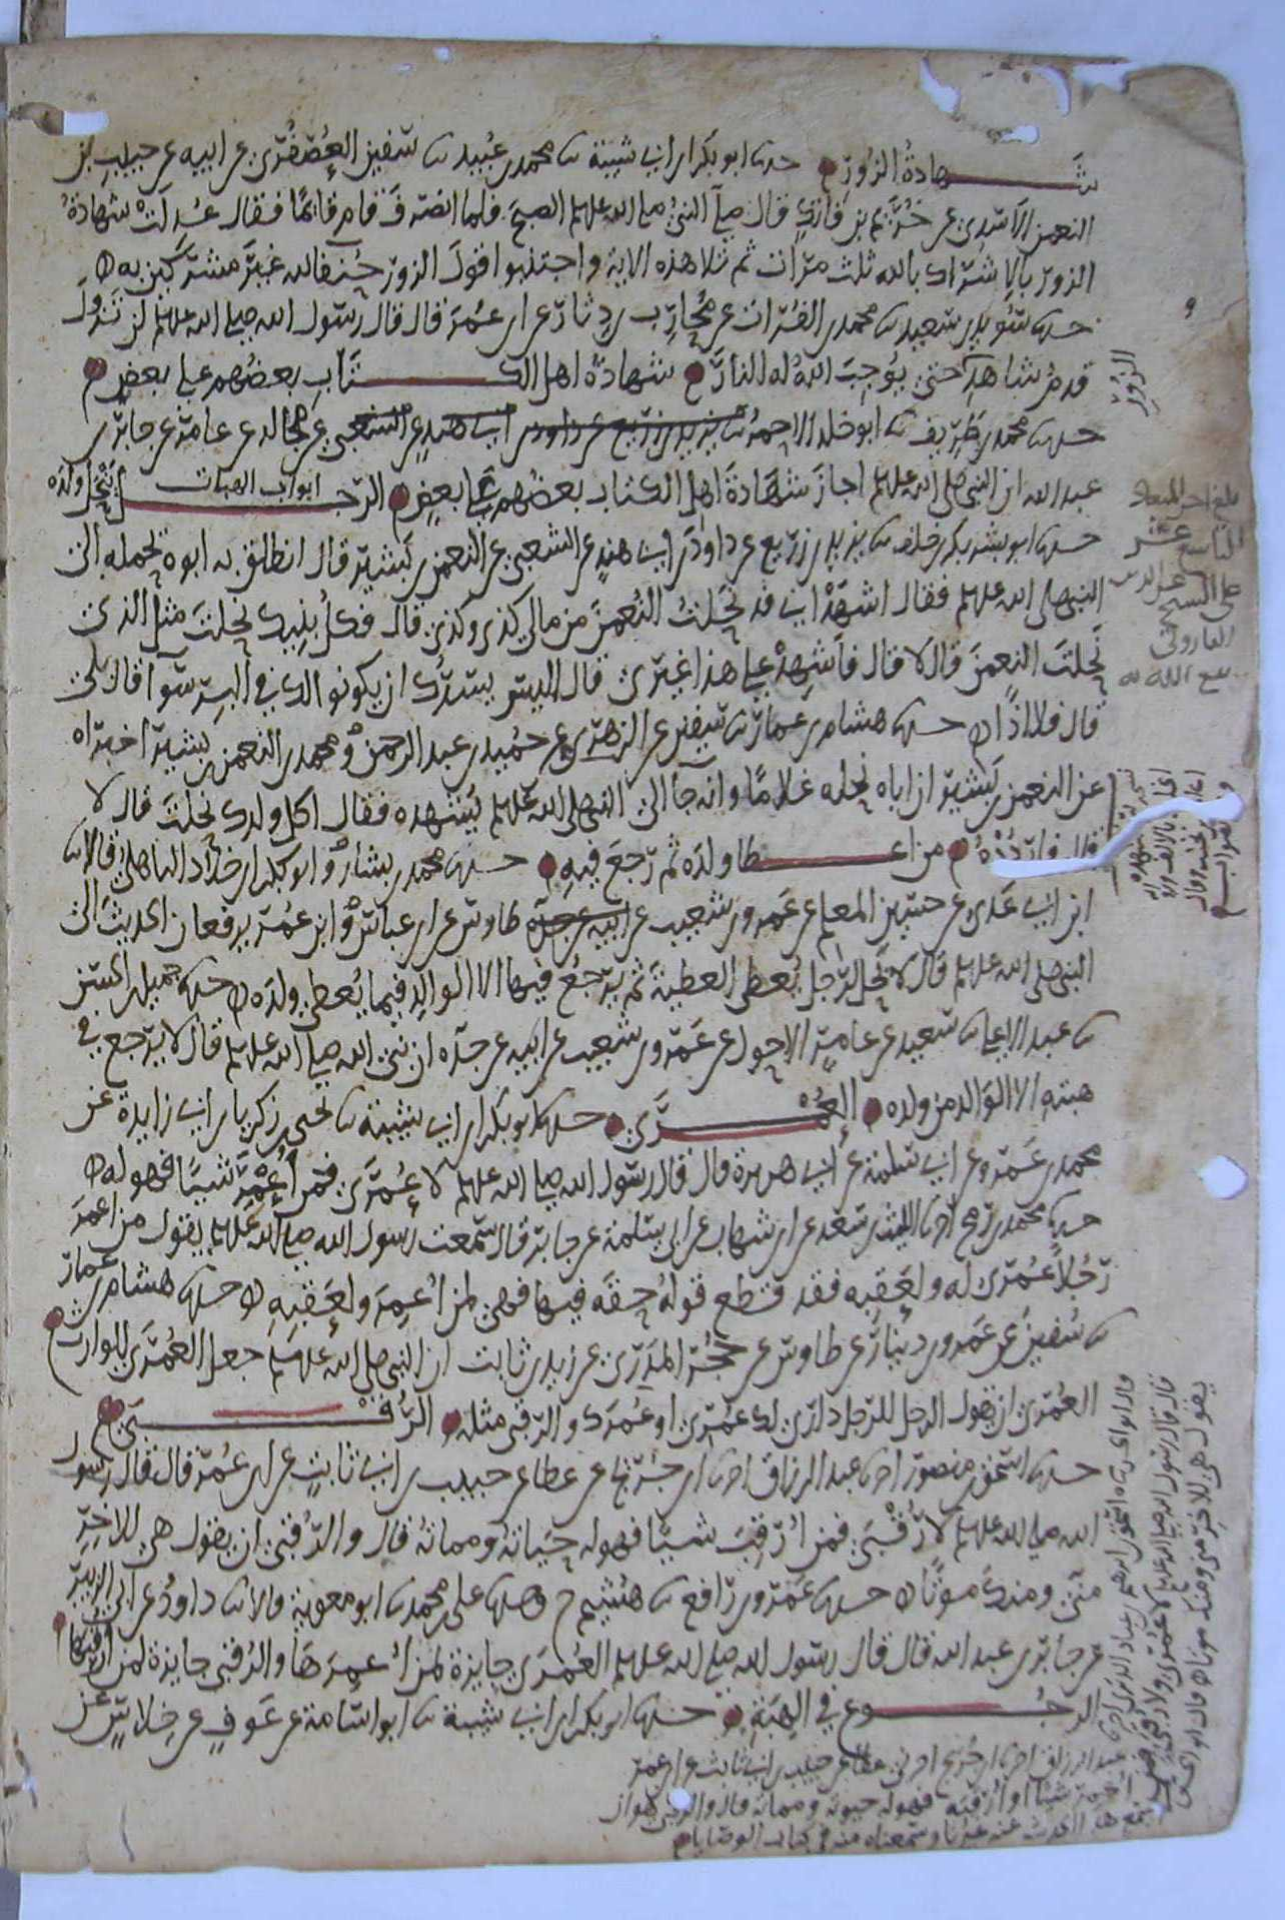 شهادة الزور حدثنا ابو بكر ابن ابي شيبة ثنا محمد بن عبيد ثنا سفين العصفري عن ابيه عن حبيب بن
النعمن الاسدي عن خريم بن فاتك قال صلى النبي صلى الله عليه وسلم الصبح فلما انصرف قام قائما فقال عدلت شهادة
الزور بالاشراك بالله ثلث مرات ثم تلا هذه الاية واجتنبوا قول الزور حنفا لله غير مشركين به
حدثنا سويد بن سعيد ثنا محمد بن الفرات عن محارب بن دثار عن ابن عمر قال قال رسول الله صلى الله عليه وسلم لن تزول
قدم شاهد حتى يوجب الله له النار شهادة اهل الكتاب بعضهم على بعض
الزور
حدثنا محمد بن طريف ثنا ابو خلد الاحمر عن مجالد عن عامر عن جابر بن
عبد الله ان النبي صلى الله عليه وسلم اجاز شهادة اهل الكتاب بعضهم على بعض ابواب الهبات الرجل ينحل ولده
حدثنا ابو بشر بكر بن خلف ثنا يزيد بن زريع عن داود بن ابي هند عن الشعبي عن النعمن بن بشير قال انطلق به ابوه يحمله الى
النبي صلى الله عليه وسلم فقال اشهد اني قد نحلت النعمن من مالي كذى وكذى قال فكل بنيك نحلت مثل الذي
نحلت النعمن قال لا قال فاشهد على هذا غيري قال اليس يسرك ان يكونوا لك في البر سوآ قال بلى
قال فلا اذا حدثنا هشام بن عمار ثنا سفين عن الزهري عن حميد بن عبد الرحمن ومحمد بن النعمن بن بشير اخبراه
عن النعمن بن بشير ان اباه نحله غلاما وانه جآ الى النبي صلى الله عليه وسلم يشهده فقال اكل ولدك نحلت قال لا
قال فاردده من اعطا ولده ثم رجع فيه حدثنا محمد بن بشار وابو بكر ابن خلاد الباهلي قالا ثنا
ابن ابي عدي عن حسين المعلم عن عمرو بن شعيب عن طاوس عن ابن عباس وابن عمر يرفعان الحديث الى
النبي صلى الله عليه وسلم قال لا يحل لرجل يعطي العطية ثم يرجع فيها الا الوالد فيما يعطي ولده حدثنا جميل بن الحسن
ثنا عبد الاعلى ثنا سعيد عن عامر الاحول عن عمرو بن شعيب عن ابيه عن جده ان نبي الله صلى الله عليه وسلم قال لا يرجع في
هبته الا الوالد من ولده العمرى حدثنا ابو بكر ابن ابي شيبة ثنا يحيى بن زكريا بن ابي زايدة عن
محمد بن عمرو عن ابي سلمة عن ابي هريرة قال قال رسول الله صلى الله عليه وسلم لا عمرى فمن اعمر شيئا فهو له
حدثنا محمد بن رمح انا الليث بن سعد عن ابن شهاب عن ابي سلمة عن جابر قال سمعت رسول الله صلى الله عليه وسلم يقول من اعمر
رجلا عمرى له ولعقبه فقد قطع قوله حقه فيها فهي لمن اعمر ولعقبه حدثنا هشام بن عمار
ثنا سفين عن عمرو بن دينار عن طاوس عن حجر المدري عن زيد بن ثابت ان النبي صلى الله عليه وسلم جعل العمرى للوارث
العمرى ان يقول الرجل للرجل داري لك عمري او عمرك والرقبى مثله الرقبى
حدثنا اسحق بن منصور انا عبد الرزاق انا ابن جريج عن عطا عن حبيب بن ابي ثابت عن ابن عمر قال قال رسول
الله صلى الله عليه وسلم لا رقبى فمن ارقب شيئا فهو له حياته ومماته قال والرقبى ان يقول هي للاخر
مني ومنك موتا حدثنا عمرو بن رافع ثنا هشيم ح وحدثنا علي بن محمد ثنا ابو معوية قالا ثنا داود عن ابي الزبير
عن جابر بن عبد الله قال قال رسول الله صلى الله عليه وسلم العمرى جايزة لمن اعمرها والرقبى جايزة لمن ارقبها
الرجوع في الهبة حدثنا ابو بكر ابن ابي شيبة ثنا ابو اسامة عن عوف عن خلاس عن
عبد الرزاق انا ابن جريج اخبرني عطا عن حبيب بن ابي ثابت عن ابن عمر
قال قال رسول الله صلى الله عليه وسلم لا عمرى ولا رقبى فمن
اعمر شيئا او ارقبه فهو له حيوته ومماته قال والرقبى هو ان
يقول هي للاخر مني ومنك موتا